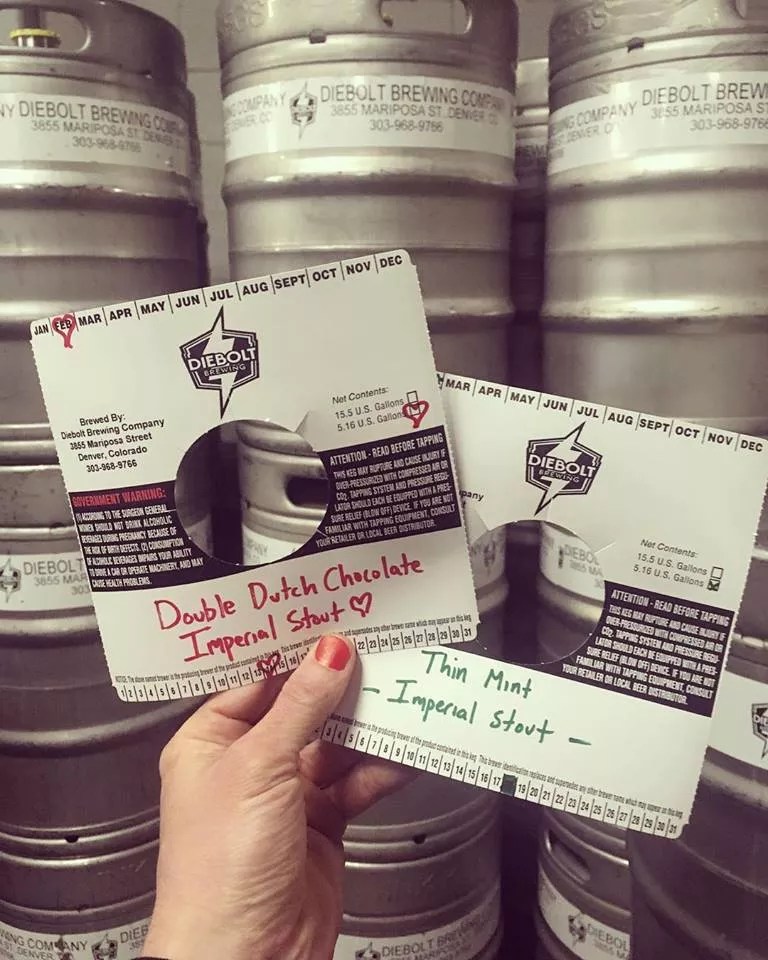 NY DIEBOLT BREWING COM
3855 MARIPOSA ST. DENVER, CO
303-968-9766
COMPANY
DENVER, CO
DIEBOLT BREWING COMPANY
3855 MARIPOSA ST. DENVER, CO
303-968-9766
COMPANY
DENVER, CO
DIEBOLT B
3855 MARIPOSA ST
303-968-976
JAN FEB MAR APR MAY JUN JUL AUG SEPT OCT NOV DEC
DIEBOLT
BREWING
Brewed By:
Diebolt Brewing Company
3855 Mariposa Street
Denver, Colorado
303-968-9766
Net Contents:
15.5 U.S. Gallons
5.16 U.S. Gallons
GOVERNMENT WARNING:
(1) ACCORDING TO THE SURGEON GENERAL
WOMEN SHOULD NOT DRINK ALCOHOLIC
BEVERAGES DURING PREGNANCY BECAUSE OF
THE RISK OF BIRTH DEFECTS. (2) CONSUMPTION
OF ALCOHOLIC BEVERAGES IMPAIRS YOUR ABILITY
TO DRIVE A CAR OR OPERATE MACHINERY, AND MAY
CAUSE HEALTH PROBLEMS.
ATTENTION - READ BEFORE TAPPING
THIS KEG MAY RUPTURE AND CAUSE INJURY IF
OVER-PRESSURIZED WITH COMPRESSED AIR OR
CO2. TAPPING SYSTEM AND PRESSURE REGU-
LATOR SHOULD EACH BE EQUIPPED WITH A PRES-
SURE RELIEF (BLOW OFF) DEVICE. IF YOU ARE NOT
FAMILIAR WITH TAPPING EQUIPMENT, CONSULT
YOUR RETAILER OR LOCAL BEER DISTRIBUTOR.
Double Dutch Chocolate
Imperial Stout ♡
NOTICE: The name brewed is the producing brewer of the product contained in this keg. This brewer
supersedes any other brewer name which may appear on this keg
1 2 3 4 5 6 7 8 9 10 11 12 13 15 16 22 23 24 25 26 27 28 29 30 31
MAR APR MAY JUN JUL AUG SEPT OCT NOV DEC
DIEBOLT
BREWING
pany
Net Contents:
15.5 U.S. Gallons
5.16 U.S. Gallons
ATTENTION - READ BEFORE TAPPING
THIS KEG MAY RUPTURE AND CAUSE INJURY IF
OVER-PRESSURIZED WITH COMPRESSED AIR OR
CO2. TAPPING SYSTEM AND PRESSURE REGU-
LATOR SHOULD EACH BE EQUIPPED WITH A PRES-
SURE RELIEF (BLOW OFF) DEVICE. IF YOU ARE NOT
FAMILIAR WITH TAPPING EQUIPMENT, CONSULT
YOUR RETAILER OR LOCAL BEER DISTRIBUTOR.
Thin Mint
- Imperial Stout -
brewer is the producing brewer of the product contained in this keg. This brewer identification replaces and supersedes any other brewer name which may appear on this keg
3 4 5 6 7 8 9 10 11 12 13 14 15 16 17 19 20 21 22 23 24 25 26 27 28 29 30 31
DIEBOLT BREWING